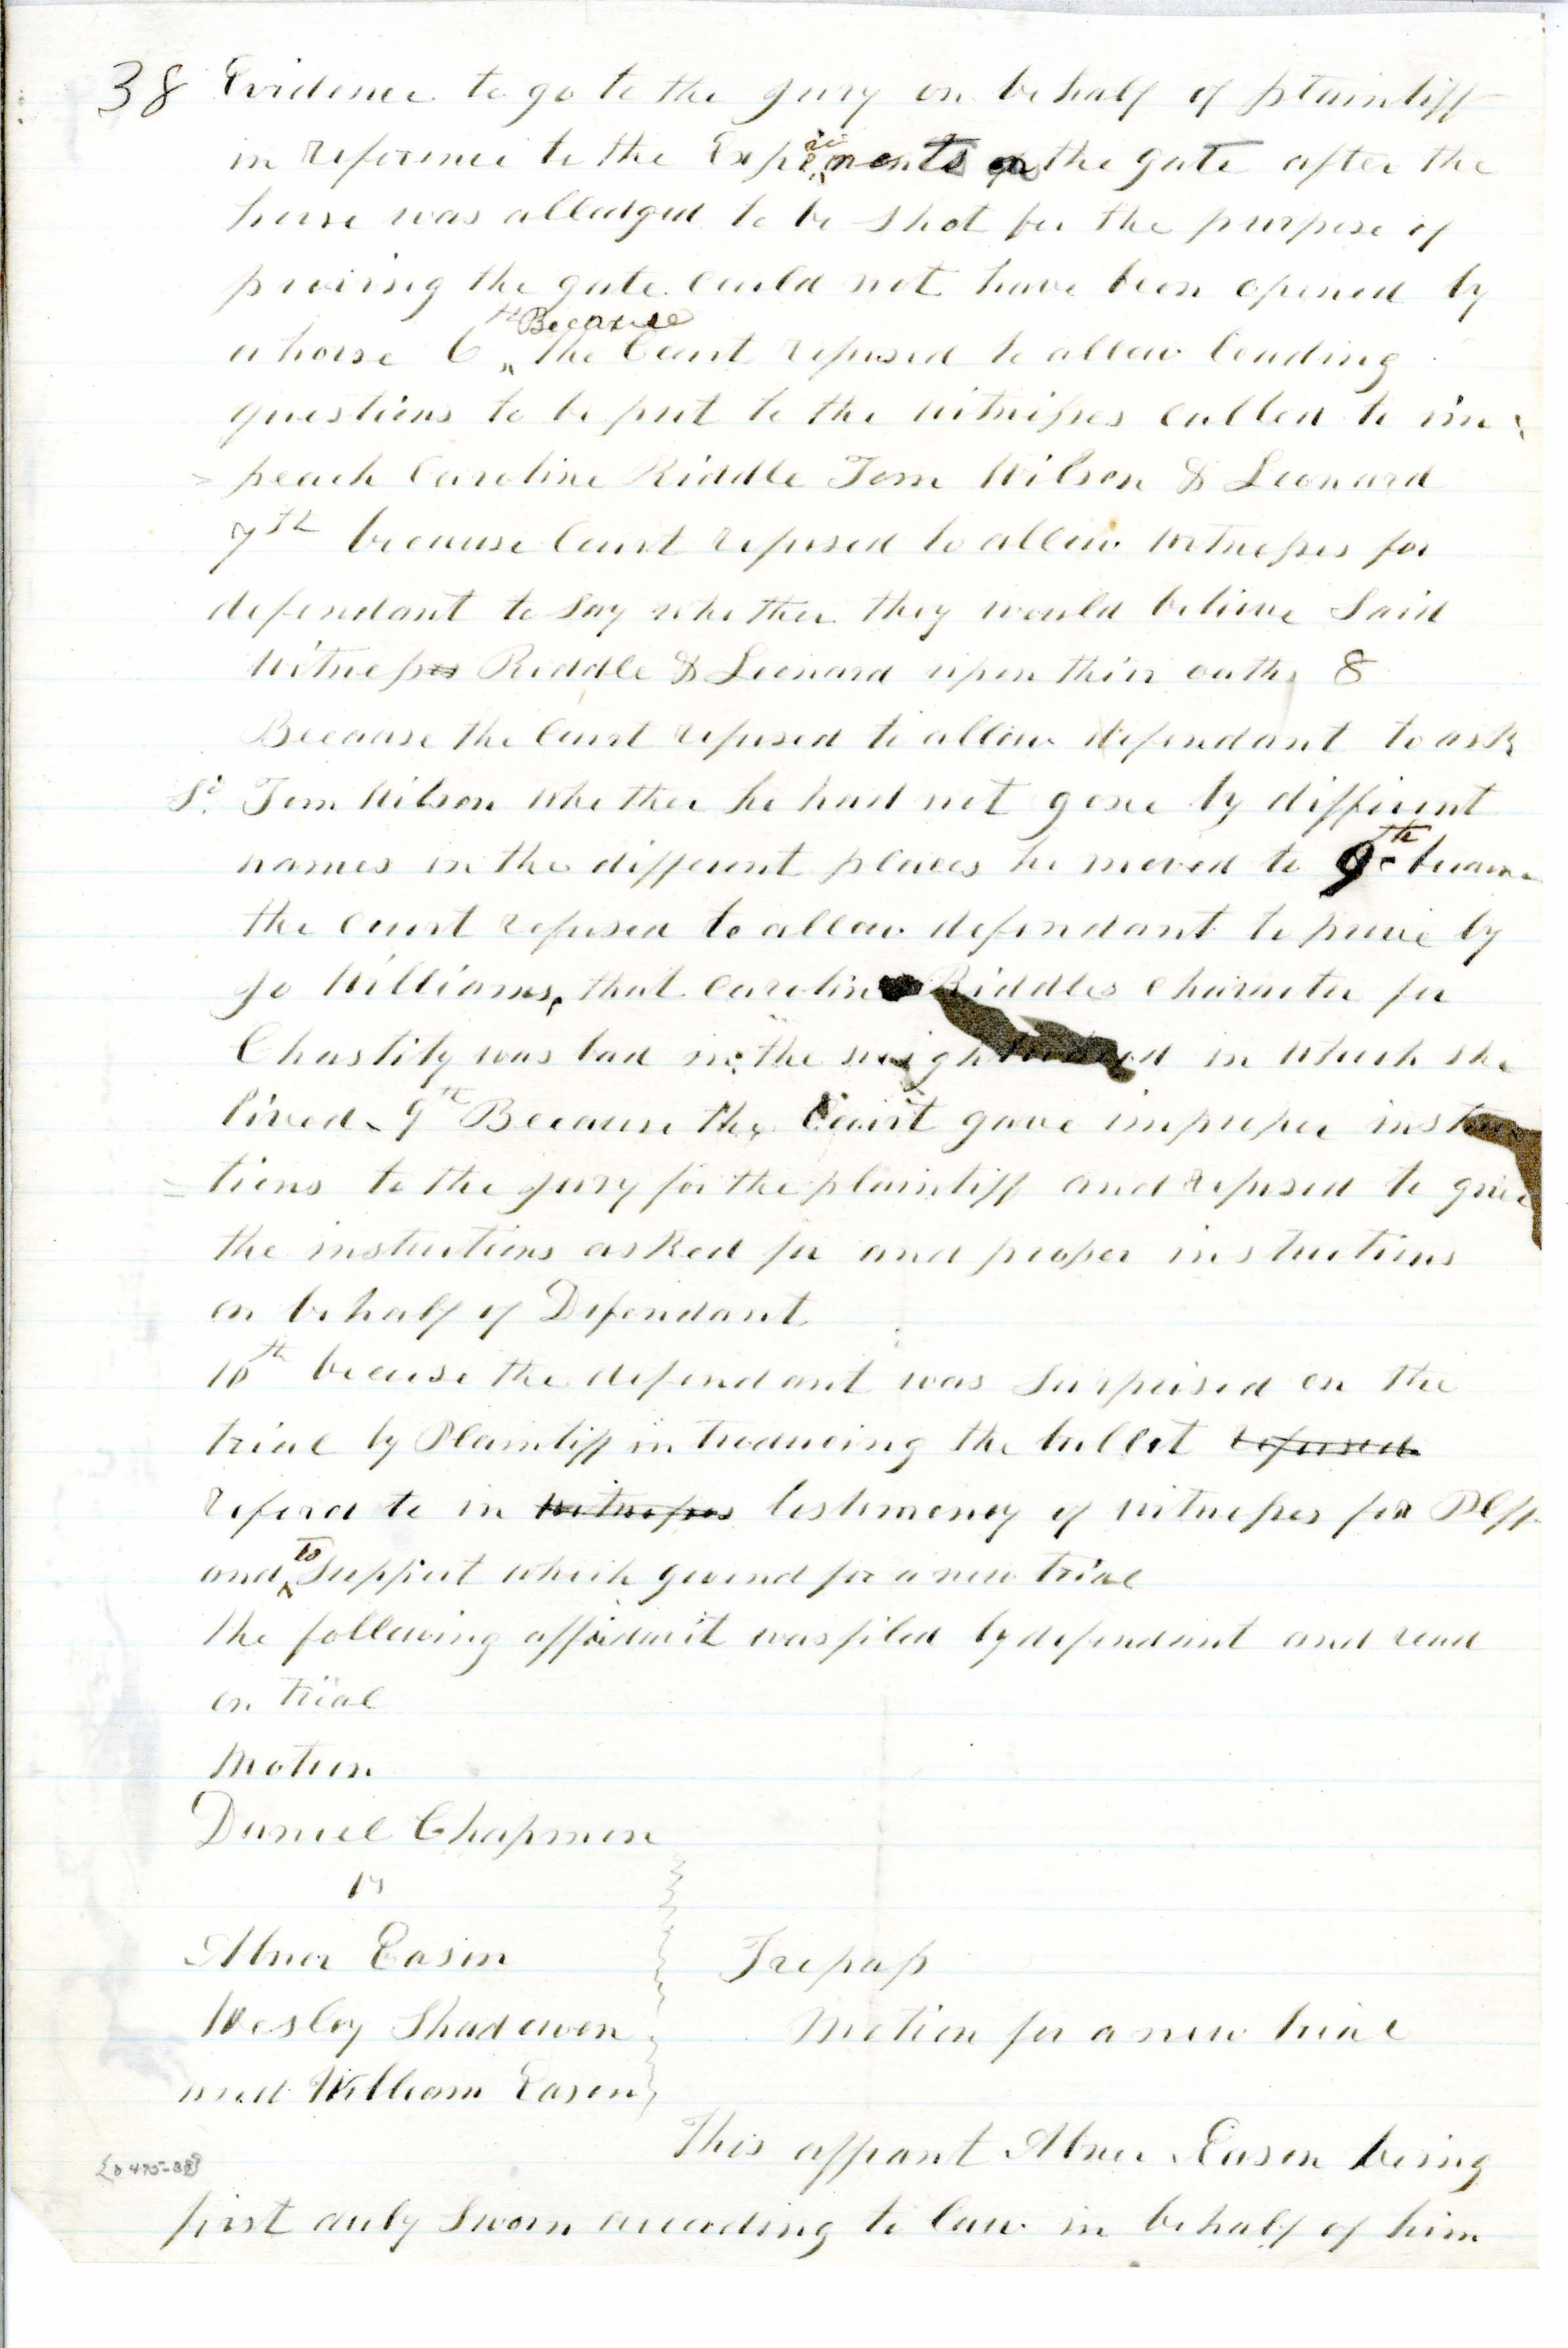 38 Evidence to go to the jury on behalf of plaintiff
in reference to the Experiments on the gate after the
horse was alledged to be shot for the purpose of
proving the gate could not have been opened by
a horse 6th Because the Court refused to allow leading
questions to be put to the witnesses called to im
= peach Caroline Riddle Tom Wilson & Leonard
7th because Court refused to allow witnesses for
defendant to say whether they would believe Said
witness Riddle & Leonard upon their oaths 8
Because the Court refused to allow defendant to ask
Sd. Tom Wilson whether he had not gone by different
names in the different places he moved to 9th because
the court refused to allow defendant to prove by
Jo Williams, that Caroline Riddles character for
Chastity was bad in the neighborhood in which she
lived 9th Because the Court gave improper instruc
= tions to the jury for the plaintiff and refused to give
the instructions asked for and proper instructions
on behalf of Defendant
10th becuse the defendant was Surprised on the
trial by Plaintiff introducing the bullet refered
referd to in witnesses testimony of witnesses for Plff
and to Support which ground for a new trial
the following affidavit was filed by defendant and read
on trial
Motion
Daniel Chapman
vs
Abner Eason Trespass
Wesley Shadowen Motion for a new trial
and William Eason
This affiant Abner Eason being
first duly Sworn according to law in behalf of him